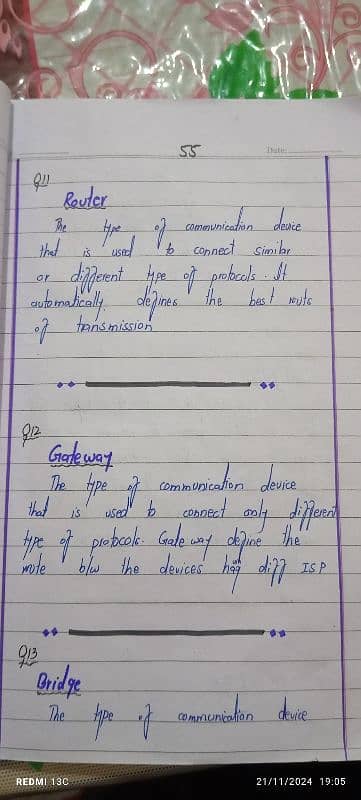 55
Date:
Q11
Router
The type of communication device
that is used to connect similar
or different type of protocols. It
automatically defines the best route
of transmission
Q12
Gateway
The type of communication device
that is used to connect only different
type of protocols. Gate way define the
route b/w the devices diff ISP
Q13
Bridge
The type of communication device
REDMI 13C
21/11/2024 19:05